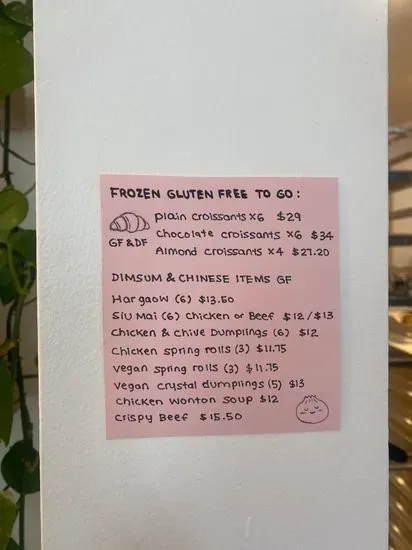 FROZEN GLUTEN FREE TO GO:
Plain croissants x6 $29
Chocolate croissants x6 $34
GF & DF
Almond croissants x4 $27.20
DIMSUM & CHINESE ITEMS GF
Hargaow (6) $13.50
Siu Mai (6) Chicken or Beef $12/$13
Chicken & Chive Dumplings (6) $12
Chicken spring rolls (3) $11.75
vegan spring rolls (3) $11.75
Vegan crystal dumplings (5) $13
Chicken Wonton Soup $12
Crispy Beef $15.50